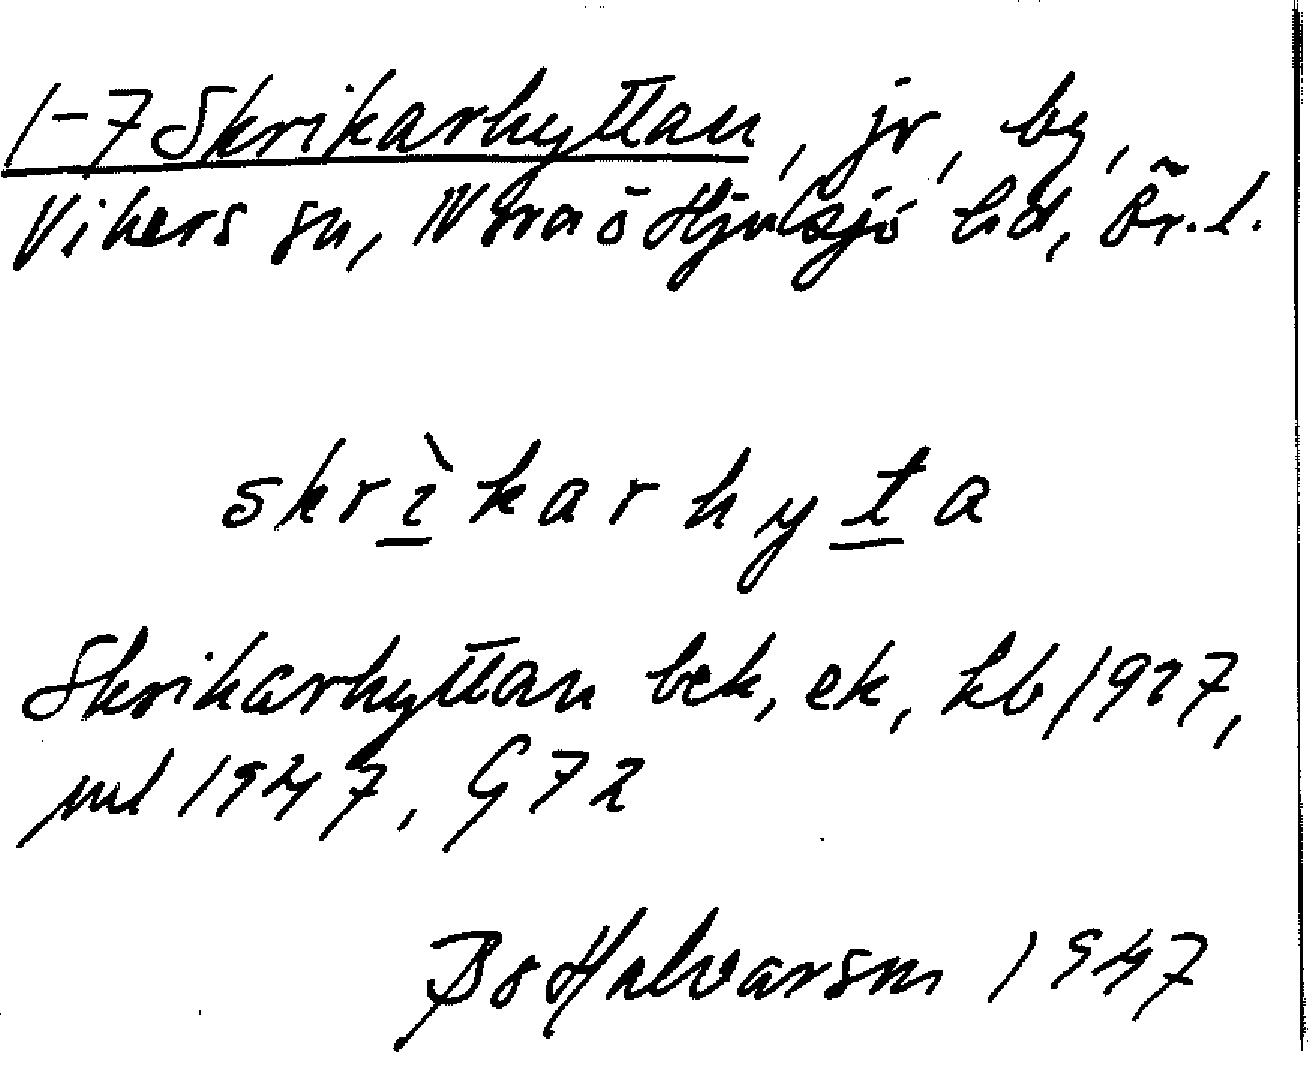 1-7 Skrikarhyttan, jr, by,
Vikers sn, Nora o Hjulsjö hd, Ör.l.
skrìkarhyta
Skrikarhyttan bek, ek, hb 1927,
ml 1947, G 72
Bo Halvarsson 1947